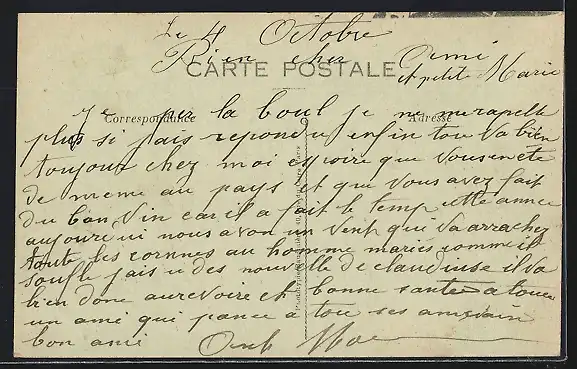 Le 4 Octobre
Bien cher Ami
et petite Marie
CARTE POSTALE
Correspondance
Adresse
Je la boul je ne me rapelle
plus si jais repondu enfin tou va bien
toujour chez moi espoire que vous ete
de meme au pays et que vous avez fait
du bon vin car il a fait le temp cette annee
aujourdui nous avon un vent qui va arracher
toute les cornnes au homme mariés comme il
soufle jais u des nouvelle de il va
bien donc aurevoire et bonne santée a tous
un ami qui pance a tou ses ami
bon ami